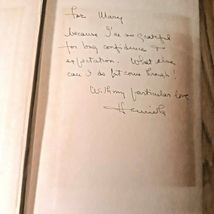 For Mary
because I'm so grateful
for big confidence &
expectation. What else
can I do but come through!
With my particular love